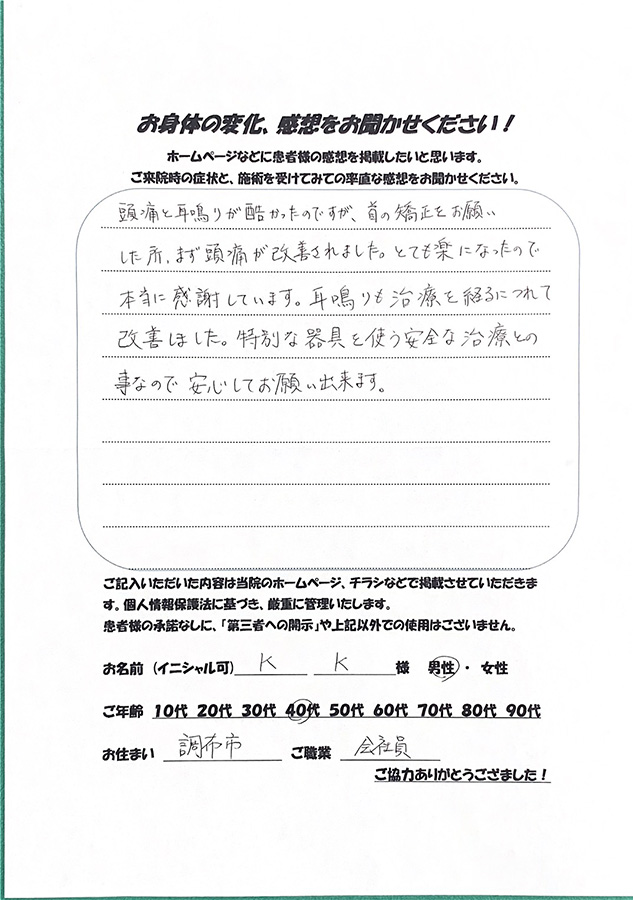 お身体の変化、感想をお聞かせください！
ホームページなどに患者様の感想を掲載したいと思います。
ご来院時の症状と、施術を受けてみての率直な感想をお聞かせください。
頭痛と耳鳴りが酷かったのですが、首の矯正をお願い
した所、まず頭痛が改善されました。とても楽になったので
本当に感謝しています。耳鳴りも治療を経るにつれて
改善しました。特別な器具を使う安全な治療との
事なので安心してお願い出来ます。
ご記入いただいた内容は当院のホームページ、チラシなどで掲載させていただきま
す。個人情報保護法に基づき、厳重に管理いたします。
患者様の承諾なしに、「第三者への開示」や上記以外での使用はございません。
お名前（イニシャル可） K K 様 男性・女性
ご年齢 10代 20代 30代 40代 50代 60代 70代 80代 90代
お住まい 調布市 ご職業 会社員
ご協力ありがとうござました！